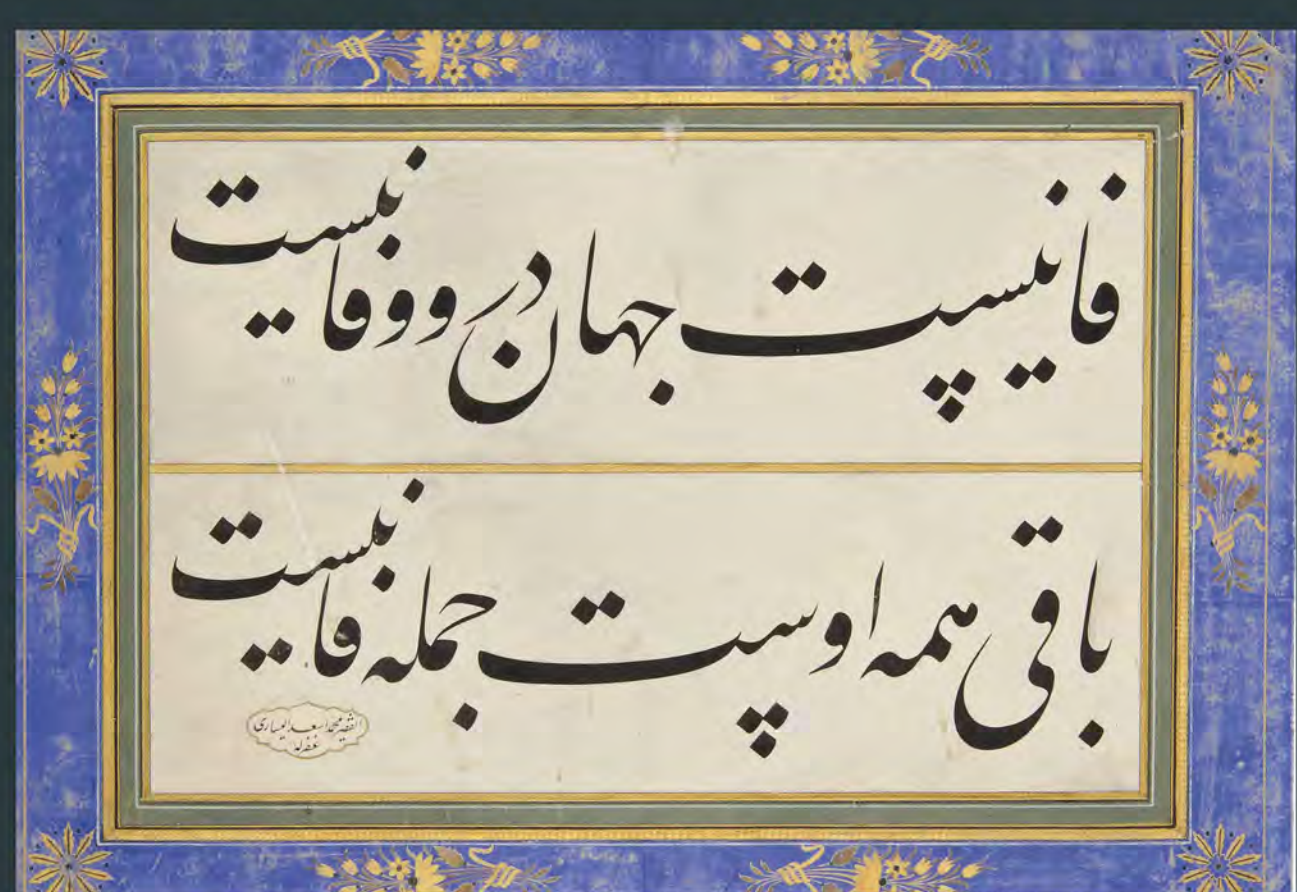 فانیست جهان درو وفا نیست
باقی همه اوست جمله فانیست
الفقیر محمد اسعد الیساری
غفر له